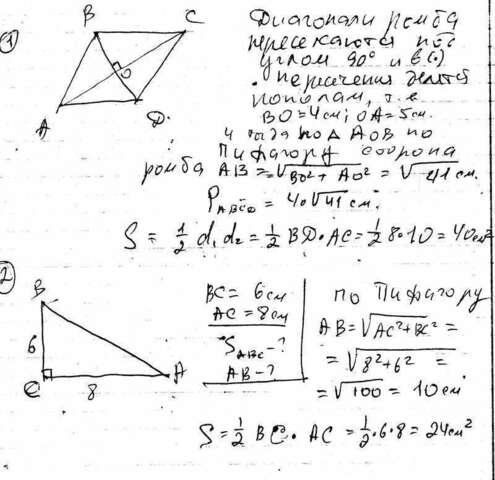 1
B C
O
A D
Диагонали ромба
пересекаются под
углом 90° и в (·)
пересечения делятся
пополам, т.е
BO = 4 см; OA = 5 см.
и тогда по Δ AOB по
Пифагору сторона
ромба AB = √BO² + AO² = √41 см.
P_ABCD = 4·√41 см.
S = 1/2 d₁ d₂ = 1/2 BD·AC = 1/2 8·10 = 40 см²
2
B
6
C 8 A
BC = 6 см
AC = 8 см
S_ABC - ?
AB - ?
по Пифагору
AB = √AC² + BC² =
= √8² + 6² =
= √100 = 10 см
S = 1/2 BC · AC = 1/2·6·8 = 24 см²